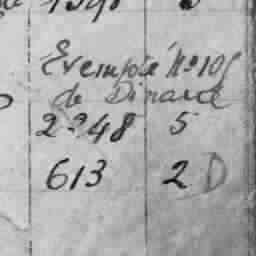 Exemple N° 105
de Dinard
2248 5
613 2 D